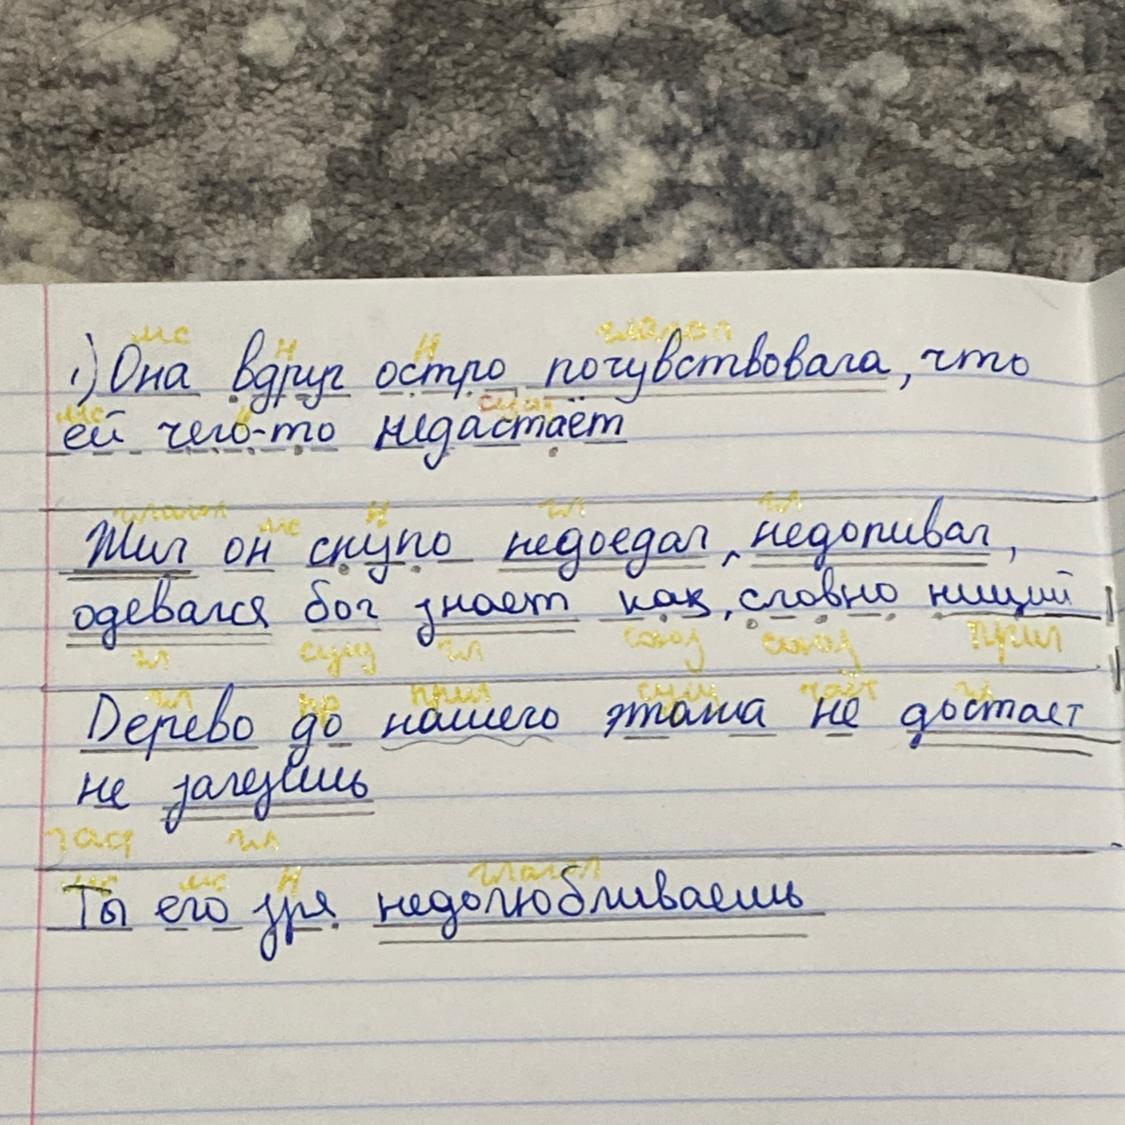 мс н н глагол
1) Она вдруг остро почувствовала, что
мс н
ей чего-то недастаёт
глагол мс н гл гл
Жил он скупо недоедал, недопивал,
одевался бог знает как, словно нищий
гл сущ гл союз союз прил
гл пр прил сущ част гл
Дерево до нашего этажа не достает
не залезишь
час гл
мс мс н глагол
Ты его зря недолюбливаешь